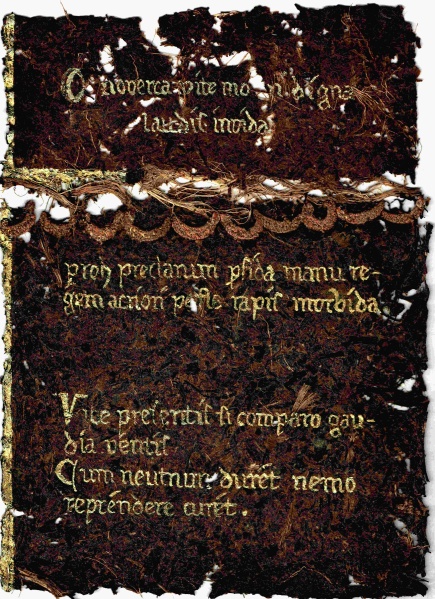 noverca digna
laudis invida
proh preclarum pfida manu re-
gem rapis morbida
Vite presentis si comparo gau-
dia ventis
Cum neutrum duret nemo
reprendere curet .